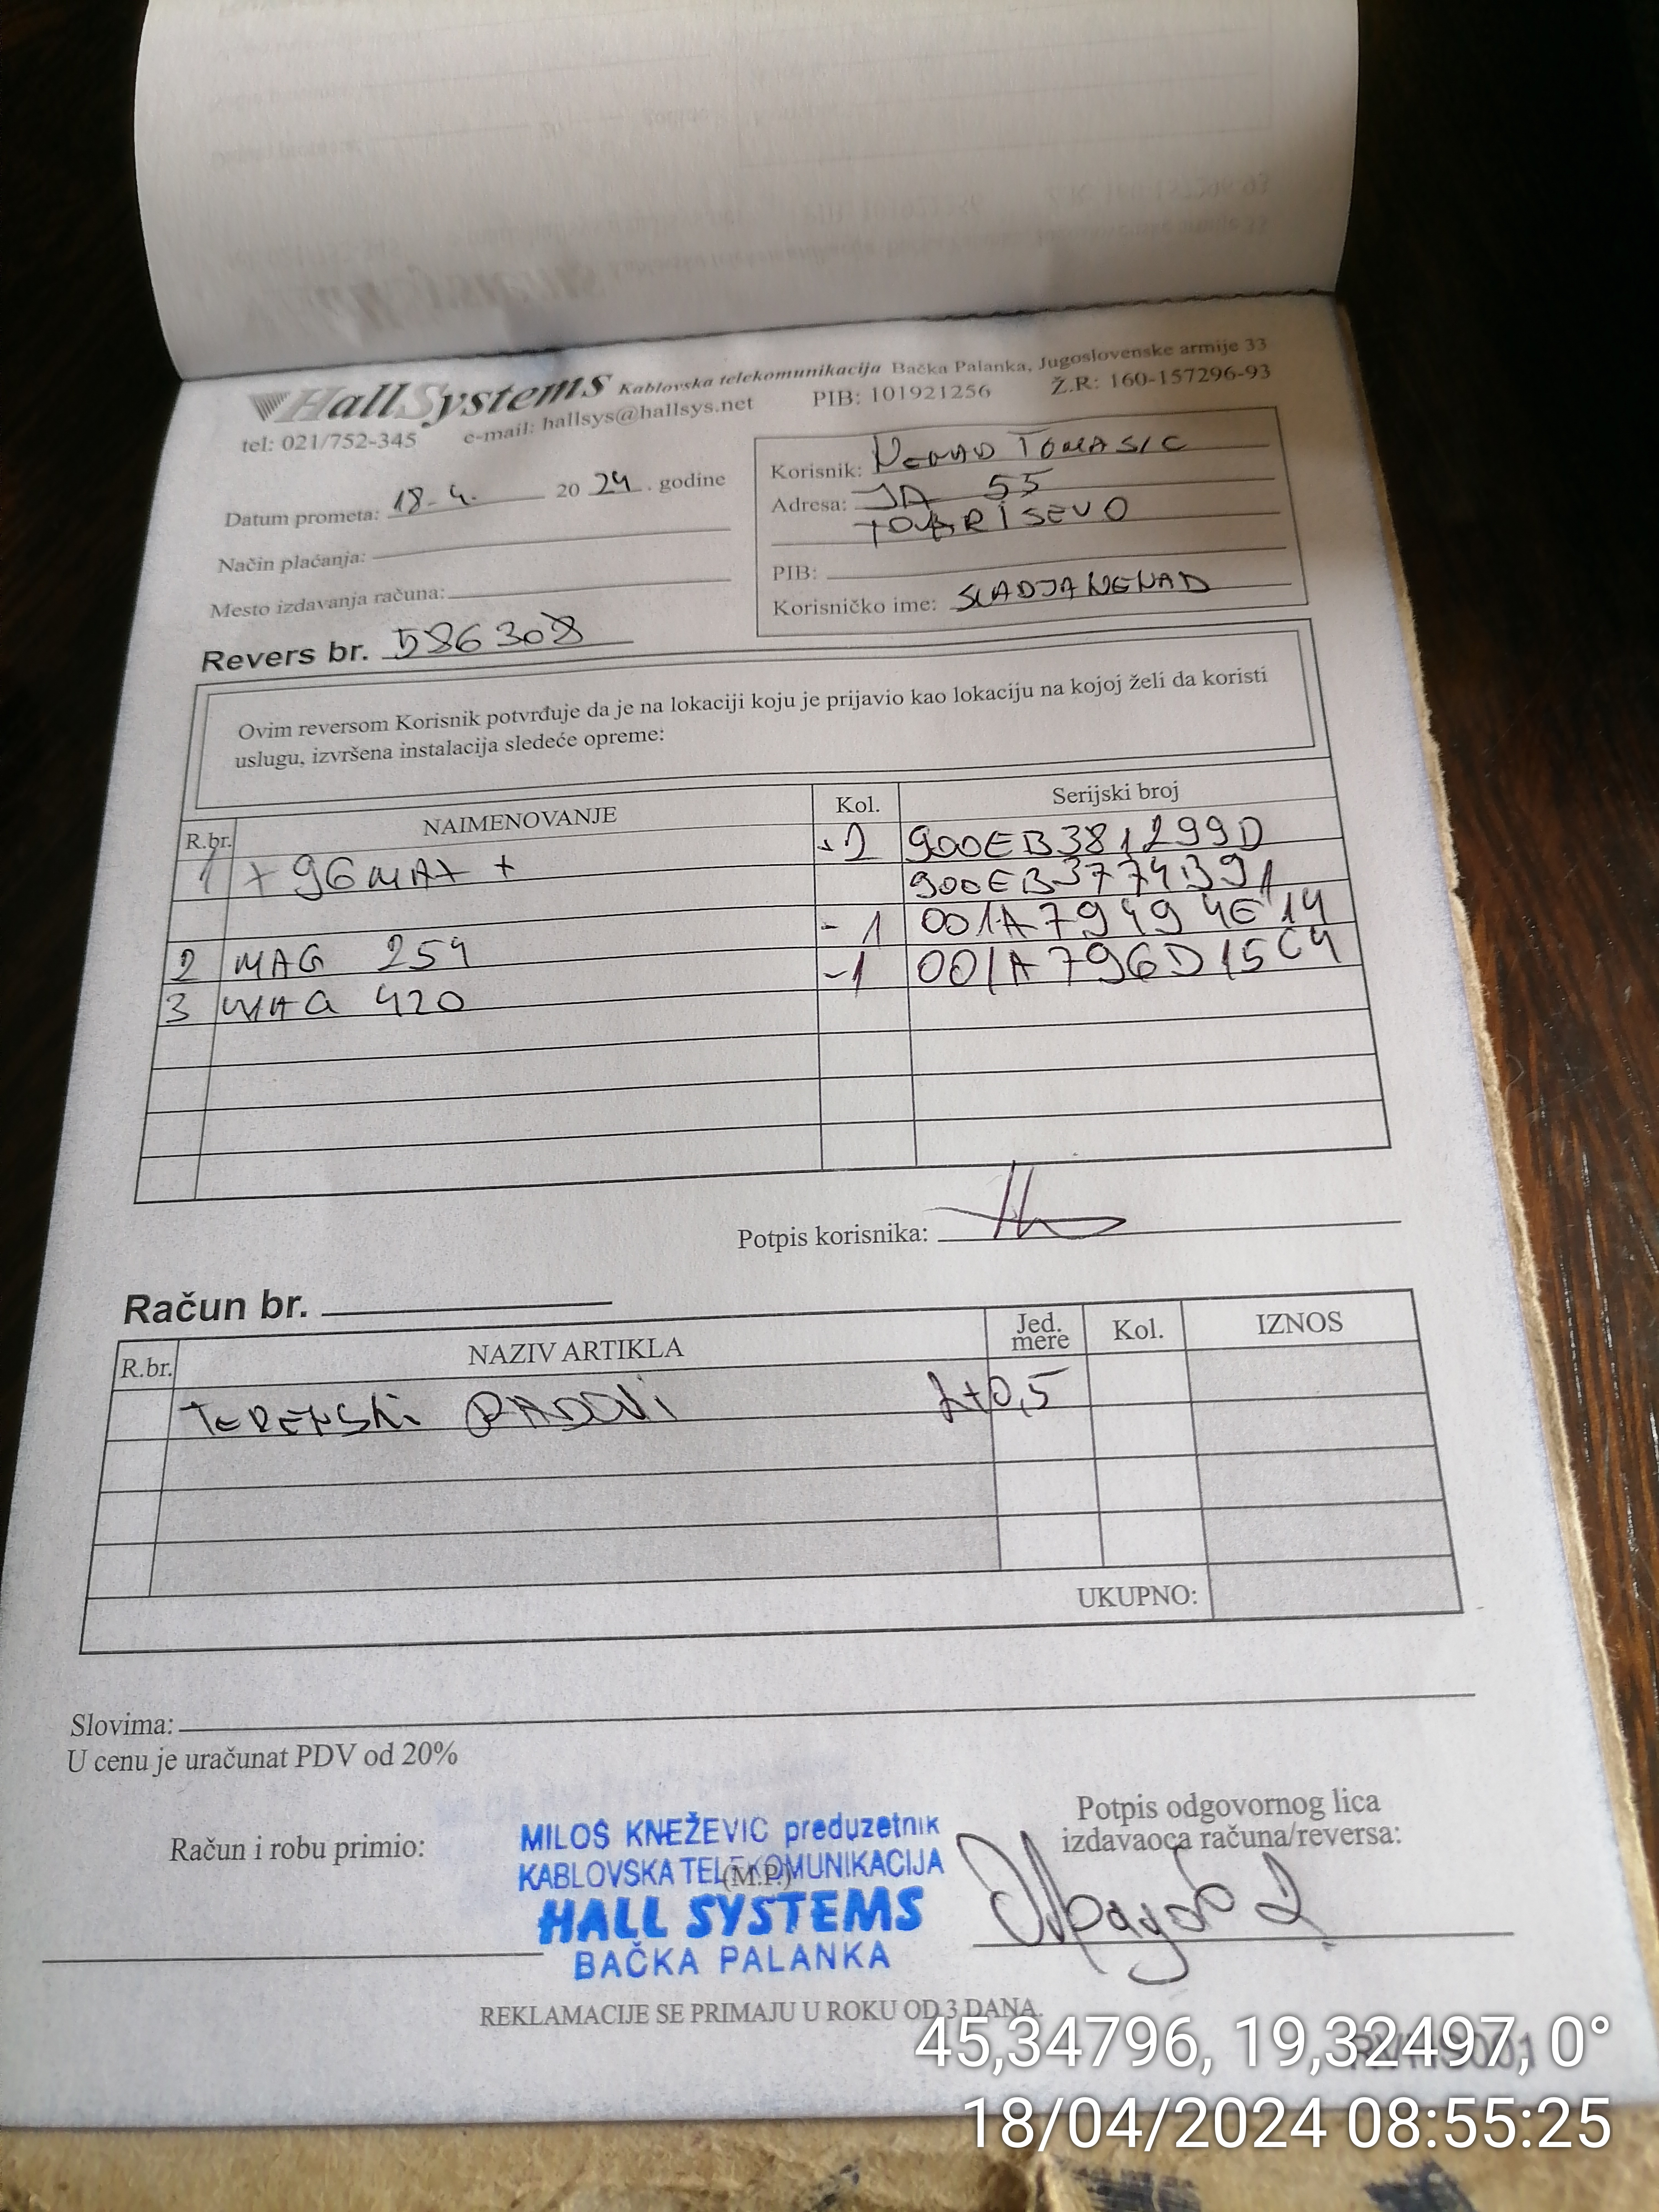 HallSystems Kablovska telekomunikacija Bačka Palanka, Jugoslovenske armije 33
tel: 021/752-345 e-mail: hallsys@hallsys.net PIB: 101921256 Ž.R: 160-157296-93
Datum prometa: 18-4. 2024. godine
Način plaćanja:
Mesto izdavanja računa:
Korisnik: NENAD TOMASIC
Adresa: JA 55
TOVARISEVO
PIB:
Korisničko ime: SLADJANENAD
Revers br. 586308
Ovim reversom Korisnik potvrđuje da je na lokaciji koju je prijavio kao lokaciju na kojoj želi da koristi
uslugu, izvršena instalacija sledeće opreme:
R.br. NAIMENOVANJE Kol. Serijski broj
1 X96MAX+ +2 900EB381299D
900EB3774391
2 MAG 254 -1 001A79494E14
3 MAG 420 -1 001A796D15C4
Potpis korisnika:
Račun br.
R.br. NAZIV ARTIKLA Jed. mere Kol. IZNOS
TERENSKI RADOVI 2+0,5
UKUPNO:
Slovima:
U cenu je uračunat PDV od 20%
Račun i robu primio:
MILOŠ KNEŽEVIĆ preduzetnik
KABLOVSKA TELEKOMUNIKACIJA
(M.P.)
HALL SYSTEMS
BAČKA PALANKA
Potpis odgovornog lica
izdavaoca računa/reversa:
REKLAMACIJE SE PRIMAJU U ROKU OD 3 DANA.
45,34796, 19,32497, 0°
18/04/2024 08:55:25